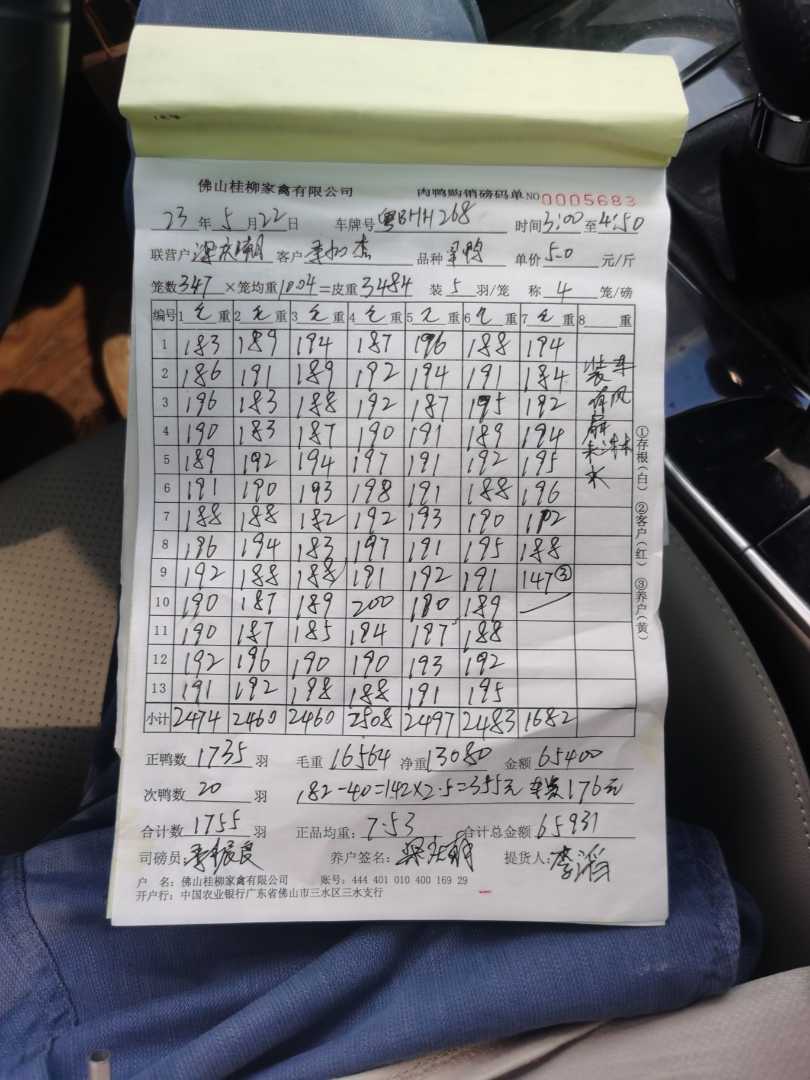 佛山桂柳家禽有限公司 肉鸭购销磅码单 NO 0005683
23 年 5 月 22 日 车牌号 粤BHH268 时间 3:00 至 4:50
联营户 客户 品种 单价 5.0 元/斤
笼数 347 ×笼均重 10.04 =皮重 3484 装 5 羽/笼 称 4 笼/磅
编号 1 毛 重 2 毛 重 3 毛 重 4 毛 重 5 毛 重 6 毛 重 7 毛 重 8 重
1 183 189 194 187 196 188 194
2 186 191 189 192 194 191 184
3 196 183 188 192 187 195 192
4 190 183 187 190 191 189 194
5 189 192 194 197 191 192 195
6 191 190 193 198 191 188 196
7 188 188 182 192 193 190 192
8 196 194 183 197 191 195 188
9 192 188 188 191 192 191 147③
10 190 187 189 200 190 189
11 190 187 185 194 197 188
12 192 196 190 190 193 192
13 191 192 198 188 191 195
小计 2474 2460 2460 2508 2497 2483 1682
装车
有风
水
①存根(白) ②客户(红) ③养户(黄)
正鸭数 1735 羽 毛重 16564 净重 13080 金额 65400
次鸭数 20 羽 182-40=142×2.5=355元 车费176元
合计数 1755 羽 正品均重: 7.53 合计总金额 65931
司磅员: 养户签名: 提货人: 李滔
户 名: 佛山桂柳家禽有限公司 账号: 444 401 010 400 169 29
开户行: 中国农业银行广东省佛山市三水区三水支行